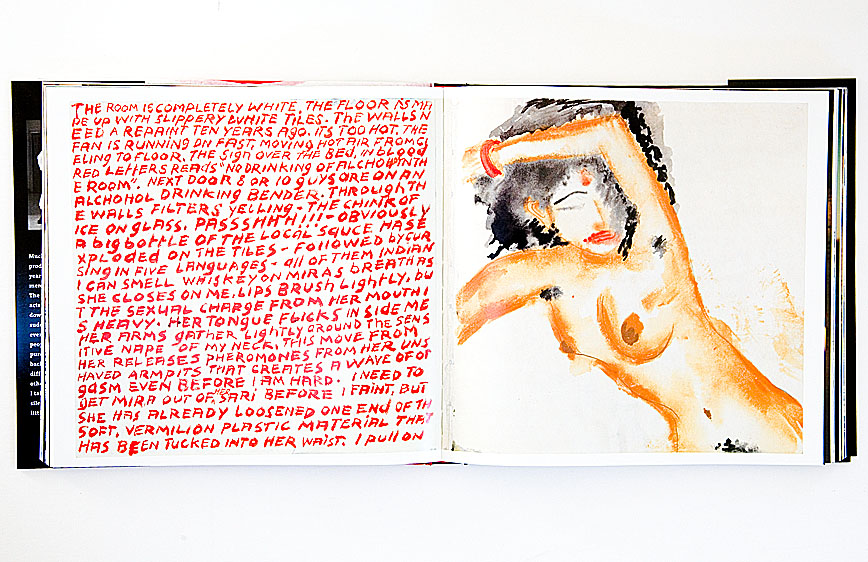 Much
prod
year
The
acts
dow
ever
peop
back
THE ROOM IS COMPLETELY WHITE, THE FLOOR IS MA
DE UP WITH SLIPPERY WHITE TILES. THE WALLS N
EED A REPAINT TEN YEARS AGO. ITS TOO HOT, THE
FAN IS RUNNING ON FAST, MOVING HOT AIR FROM CI
ELING TO FLOOR, THE SIGN OVER THE BED, IN BLOOD
RED LETTERS READS "NO DRINKING OF ALCHOL IN TH
E ROOM". NEXT DOOR 8 OR 10 GUYS ARE ON AN
ALCHOHOL DRINKING BENDER. THROUGH TH
E WALLS FILTERS YELLING - THE CHINK OF
ICE ON GLASS. PASSSHHH!!! - OBVIOUSLY
A BIG BOTTLE OF THE LOCAL SAUCE HAS E
XPLODED ON THE TILES - FOLLOWED BY CUR
SING IN FIVE LANGUAGES - ALL OF THEM INDIAN
I CAN SMELL WHISKEY ON MIRAS BREATH AS
SHE CLOSES ON ME, LIPS BRUSH LIGHTLY, BU
T THE SEXUAL CHARGE FROM HER MOUTH I
S HEAVY. HER TONGUE FLICKS IN SIDE ME
HER ARMS GATHER LIGHTLY AROUND THE SENS
ITIVE NAPE OF MY NECK, THIS MOVE FROM
HER RELEASES PHEROMONES FROM HER UNS
HAVED ARMPITS THAT CREATES A WAVE OF OR
GASM EVEN BEFORE I AM HARD. I NEED TO
GET MIRA OUT OF HER SARI BEFORE I FAINT, BUT
SHE HAS ALREADY LOOSENED ONE END OF TH
SOFT, VERMILION PLASTIC MATERIAL THAT
HAS BEEN TUCKED INTO HER WAIST. I PULL ON